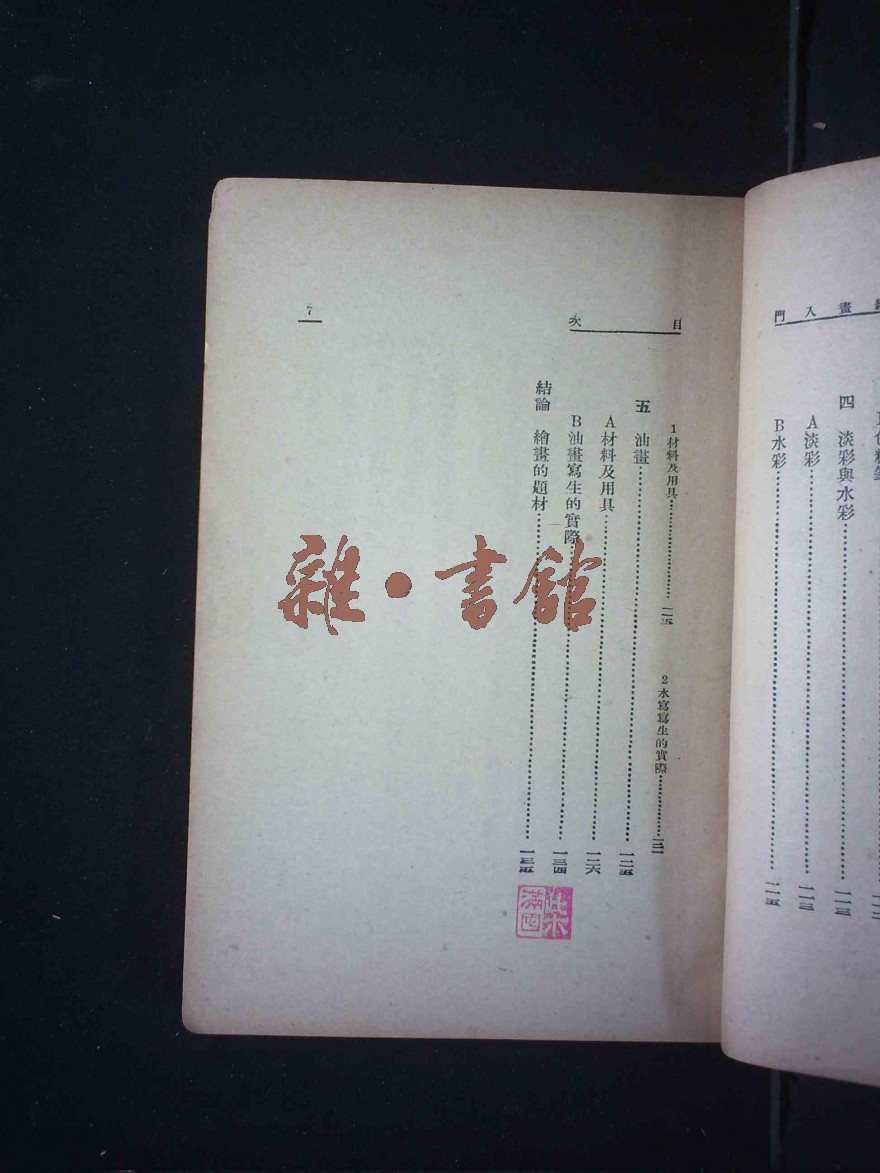 畫入門
四 淡彩與水彩……一一三
A 淡彩……一一三
B 水彩……一一五
目次
1 材料及用具……一一五
2 水寫寫生的實際……一二一
五 油畫……一二五
A 材料及用具……一二六
B 油畫寫生的實際……一三四
結論 繪畫的題材……一三五
7
雜•書館